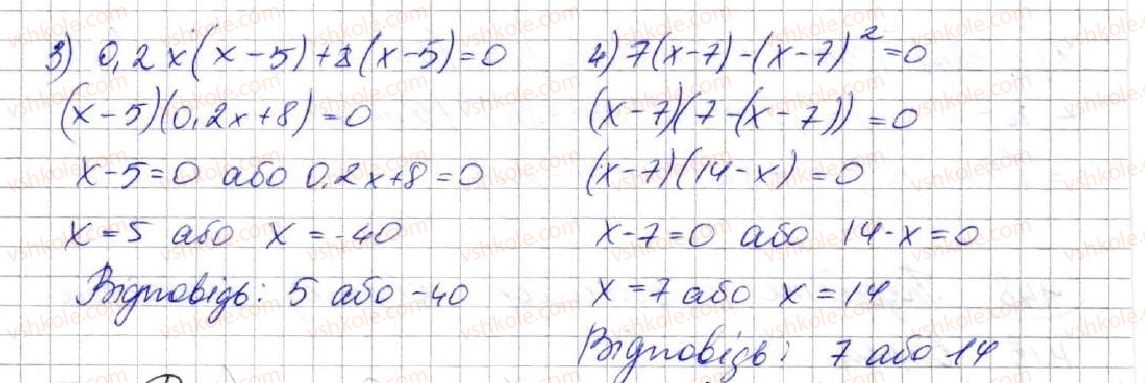 3) 0,2x(x-5)+8(x-5)=0
(x-5)(0,2x+8)=0
x-5=0 або 0,2x+8=0
x=5 або x=-40
Відповідь: 5 або -40
4) 7(x-7)-(x-7)²=0
(x-7)(7-(x-7))=0
(x-7)(14-x)=0
x-7=0 або 14-x=0
x=7 або x=14
Відповідь: 7 або 14